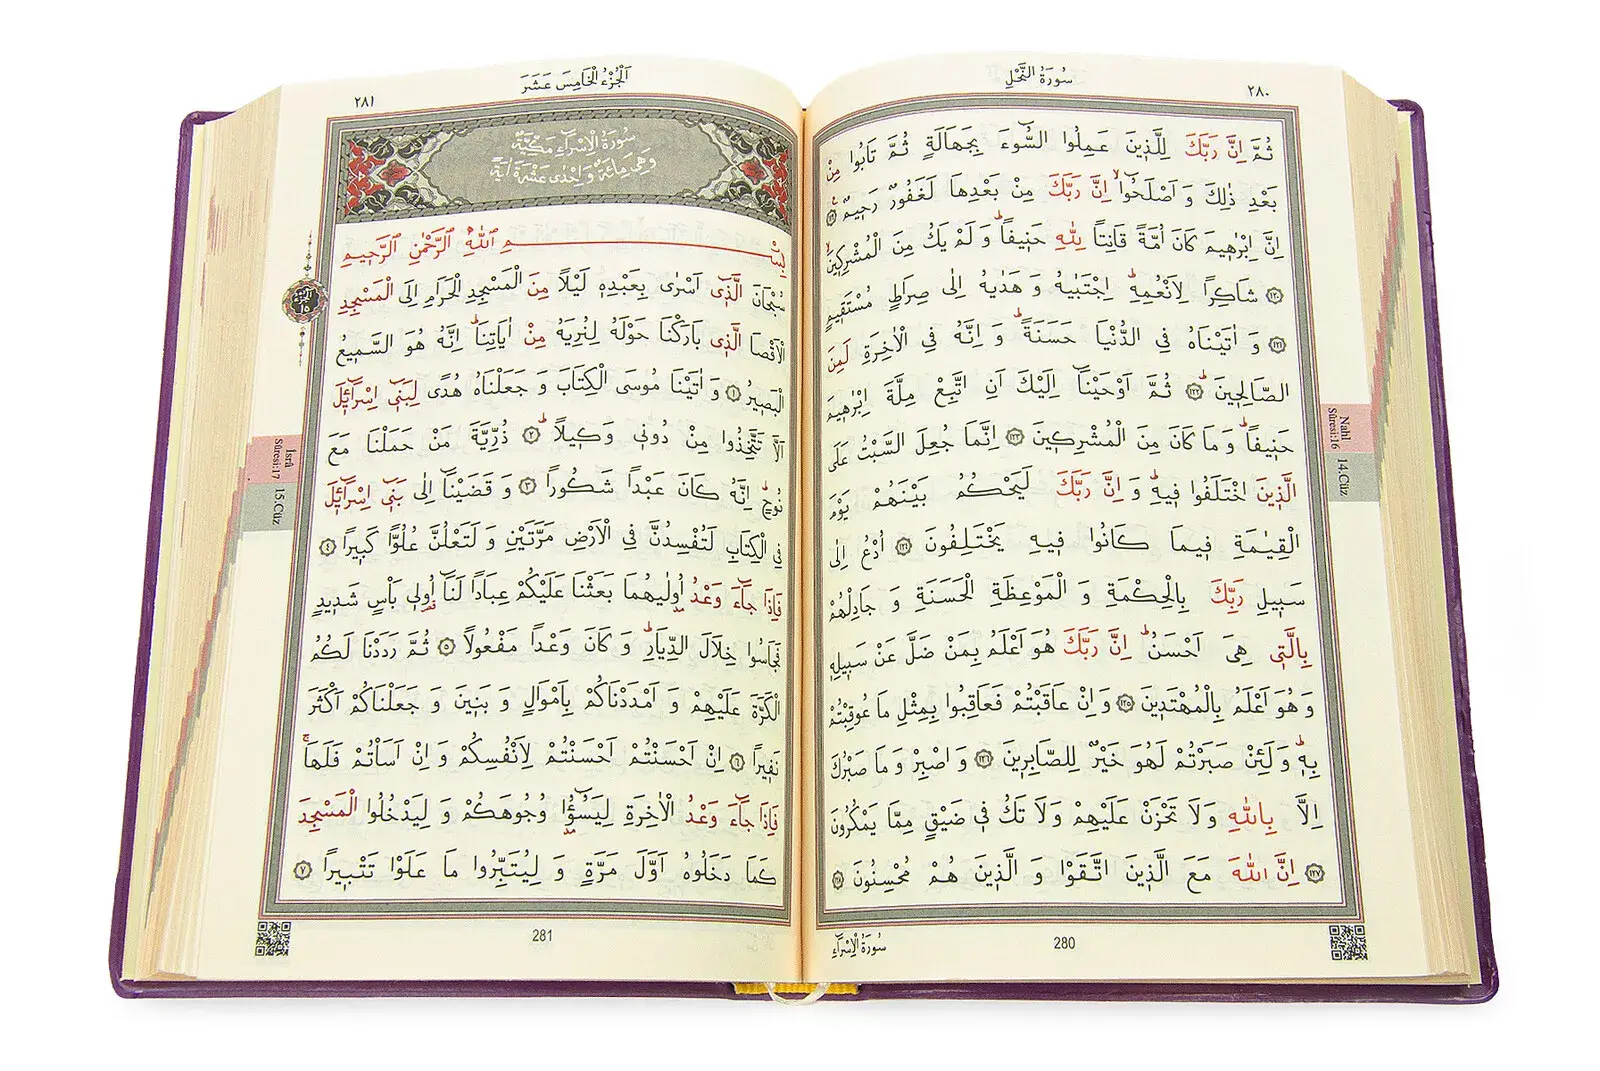 سُورَةُ النَّحْلِ
٢٨٠
ثُمَّ اِنَّ رَبَّكَ لِلَّذٖينَ عَمِلُوا السُّٓوءَ بِجَهَالَةٍ ثُمَّ تَابُوا مِنْ
بَعْدِ ذٰلِكَ وَ اَصْلَحُٓوا اِنَّ رَبَّكَ مِنْ بَعْدِهَا لَغَفُورٌ رَحٖيمٌ ١١٩
اِنَّ اِبْرٰهٖيمَ كَانَ اُمَّةً قَانِتاً لِلّٰهِ حَنٖيفاً وَ لَمْ يَكُ مِنَ الْمُشْرِكٖينَ
١٢٠ شَاكِراً لِاَنْعُمِهٖ اِجْتَبٰيهُ وَ هَدٰيهُ اِلٰى صِرَاطٍ مُسْتَقٖيمٍ
١٢١ وَ اٰتَيْنَاهُ فِي الدُّنْيَا حَسَنَةً وَ اِنَّهُ فِي الْاٰخِرَةِ لَمِنَ
الصَّالِحٖينَ ١٢٢ ثُمَّ اَوْحَيْنَٓا اِلَيْكَ اَنِ اتَّبِعْ مِلَّةَ اِبْرٰهٖيمَ
حَنٖيفاً وَ مَا كَانَ مِنَ الْمُشْرِكٖينَ ١٢٣ اِنَّمَا جُعِلَ السَّبْتُ عَلَى
الَّذٖينَ اخْتَلَفُوا فٖيهِ وَ اِنَّ رَبَّكَ لَيَحْكُمُ بَيْنَهُمْ يَوْمَ
الْقِيٰمَةِ فٖيمَا كَانُوا فٖيهِ يَخْتَلِفُونَ ١٢٤ اُدْعُ اِلٰى
سَبٖيلِ رَبِّكَ بِالْحِكْمَةِ وَ الْمَوْعِظَةِ الْحَسَنَةِ وَ جَادِلْهُمْ
بِالَّتٖي هِيَ اَحْسَنُ اِنَّ رَبَّكَ هُوَ اَعْلَمُ بِمَنْ ضَلَّ عَنْ سَبٖيلِهٖ
وَ هُوَ اَعْلَمُ بِالْمُهْتَدٖينَ ١٢٥ وَ اِنْ عَاقَبْتُمْ فَعَاقِبُوا بِمِثْلِ مَا عُوقِبْتُمْ
بِهٖ وَ لَئِنْ صَبَرْتُمْ لَهُوَ خَيْرٌ لِلصَّابِرٖينَ ١٢٦ وَ اصْبِرْ وَ مَا صَبْرُكَ
اِلَّا بِاللّٰهِ وَ لَا تَحْزَنْ عَلَيْهِمْ وَ لَا تَكُ فٖي ضَيْقٍ مِمَّا يَمْكُرُونَ
١٢٧ اِنَّ اللّٰهَ مَعَ الَّذٖينَ اتَّقَوْا وَ الَّذٖينَ هُمْ مُحْسِنُونَ ١٢٨
Nahl Sûresi:16 14.Cüz
280
سُورَةُ الْاِسْرَاءِ
اَلْجُزْءُ الْخَامِسَ عَشَرَ
٢٨١
سُورَةُ الْاِسْرَاءِ مَكِّيَّةٌ
وَهِيَ مِائَةٌ وَ اِحْدٰى عَشْرَةَ اٰيَةً
بِسْمِ اللّٰهِ الرَّحْمٰنِ الرَّحٖيمِ
سُبْحَانَ الَّذٖٓي اَسْرٰى بِعَبْدِهٖ لَيْلاً مِنَ الْمَسْجِدِ الْحَرَامِ اِلَى الْمَسْجِدِ
الْاَقْصَا الَّذٖي بَارَكْنَا حَوْلَهُ لِنُرِيَهُ مِنْ اٰيَاتِنَا اِنَّهُ هُوَ السَّمٖيعُ
الْبَصٖيرُ ١ وَ اٰتَيْنَا مُوسَى الْكِتَابَ وَ جَعَلْنَاهُ هُدًى لِبَنٖٓي اِسْرَٓائٖلَ
اَلَّا تَتَّخِذُوا مِنْ دُونٖي وَكٖيلاً ٢ ذُرِّيَّةَ مَنْ حَمَلْنَا مَعَ
نُوحٍ اِنَّهُ كَانَ عَبْداً شَكُوراً ٣ وَ قَضَيْنَٓا اِلٰى بَنٖٓي اِسْرَٓائٖلَ
فِي الْكِتَابِ لَتُفْسِدُنَّ فِي الْاَرْضِ مَرَّتَيْنِ وَ لَتَعْلُنَّ عُلُوًّا كَبٖيراً ٤
فَاِذَا جَٓاءَ وَعْدُ اُولٰيهُمَا بَعَثْنَا عَلَيْكُمْ عِبَاداً لَنَٓا اُو۬لٖي بَأْسٍ شَدٖيدٍ
فَجَاسُوا خِلَالَ الدِّيَارِ وَ كَانَ وَعْداً مَفْعُولاً ٥ ثُمَّ رَدَدْنَا لَكُمُ
الْكَرَّةَ عَلَيْهِمْ وَ اَمْدَدْنَاكُمْ بِاَمْوَالٍ وَ بَنٖينَ وَ جَعَلْنَاكُمْ اَكْثَرَ
نَفٖيراً ٦ اِنْ اَحْسَنْتُمْ اَحْسَنْتُمْ لِاَنْفُسِكُمْ وَ اِنْ اَسَأْتُمْ فَلَهَا
فَاِذَا جَٓاءَ وَعْدُ الْاٰخِرَةِ لِيَسُٓؤُ۫ا وُجُوهَكُمْ وَ لِيَدْخُلُوا الْمَسْجِدَ
كَمَا دَخَلُوهُ اَوَّلَ مَرَّةٍ وَ لِيُتَبِّرُوا مَا عَلَوْا تَتْبٖيراً ٧
İsrâ Sûresi:17 15.Cüz
281